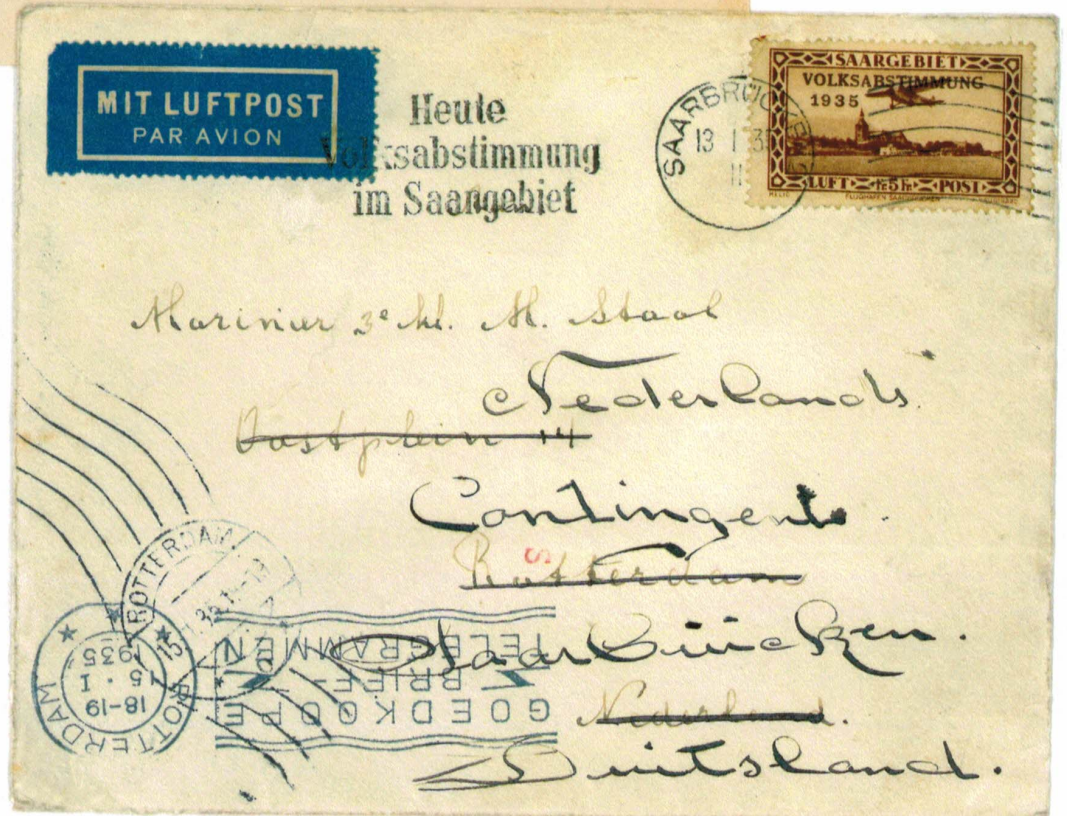 MIT LUFTPOST
PAR AVION
Heute
Volksabstimmung
im Saargebiet
SAARBRÜCKEN 2
13 1 35
11
SAARGEBIET
VOLKSABSTIMMUNG
1935
LUFT 5 Fr. POST
FLUGHAFEN SAARBRÜCKEN
Marinier 3e kl. M. Staal
Nederlands
Oostplein 14
Contingent
Rotterdam
S
Saarbrücken.
Nederland.
Duitsland.
ROTTERDAM
ROTTERDAM
18-19
15 · I
1935
GOEDKOOPE
BRIEF-
TELEGRAMMEN